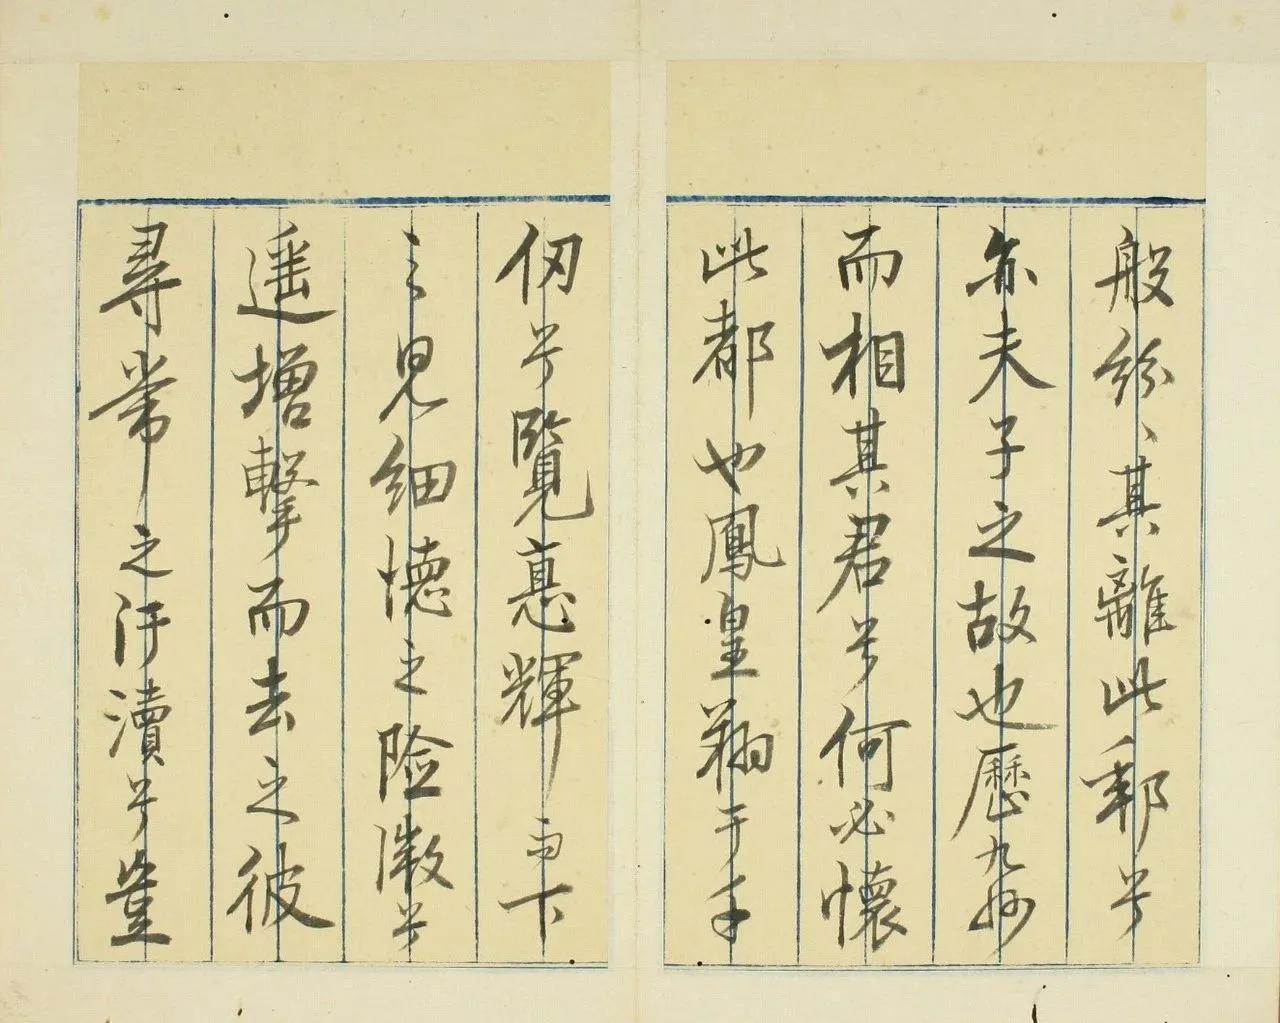 般紛、其離此郵兮
亦夫子之故也歷九州
而相其君兮何必懷
此都也鳳皇翔于千
仞兮覽惪輝而下
之見細德之險徵兮
遥增擊而去之彼
尋常之汙瀆兮豈